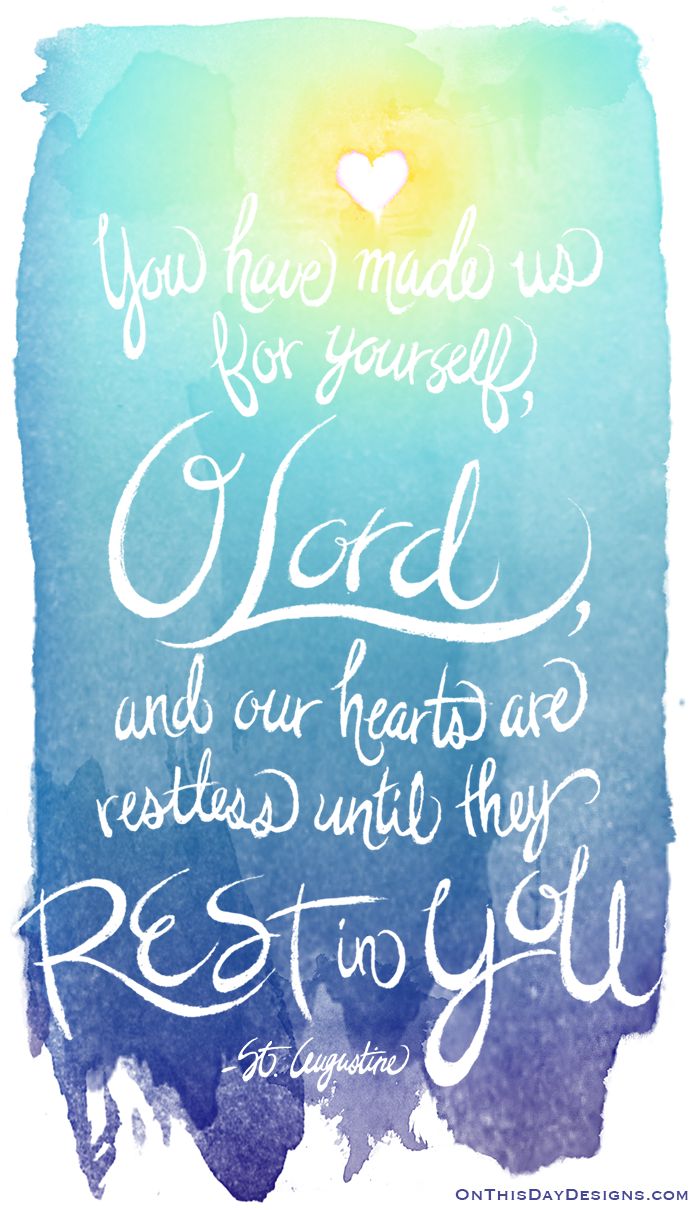 You have made us
for yourself,
O Lord,
and our hearts are
restless until they
REST in YOU
-St. Augustine
OnThisDayDesigns.com